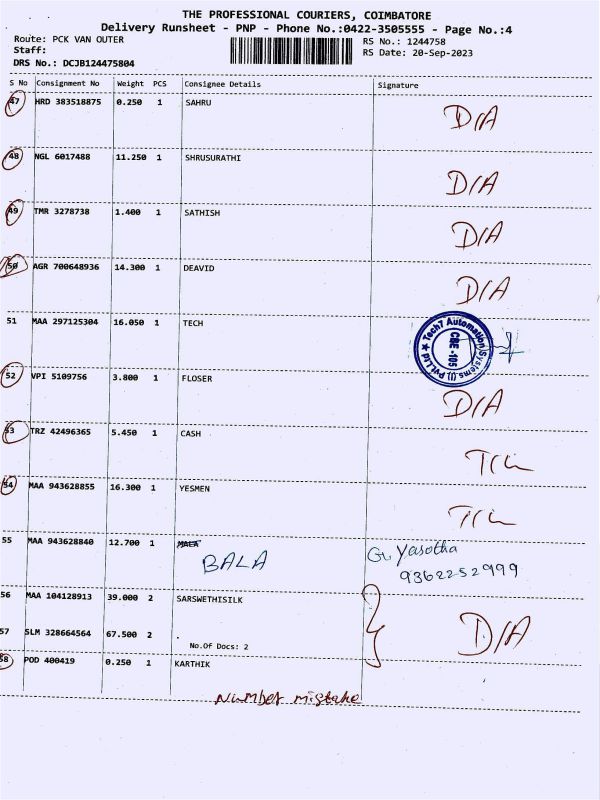 THE PROFESSIONAL COURIERS, COIMBATORE
Delivery Runsheet - PNP - Phone No.:0422-3505555 - Page No.:4
Route: PCK VAN OUTER RS No.: 1244758
Staff: RS Date: 20-Sep-2023
DRS No.: DCJB124475804
S No Consignment No Weight PCS Consignee Details Signature
47 HRD 383518875 0.250 1 SAHRU D/A
48 NGL 6017488 11.250 1 SHRUSURATHI D/A
49 TMR 3278738 1.400 1 SATHISH D/A
50 AGR 700648936 14.300 1 DEAVID D/A
51 MAA 297125304 16.050 1 TECH Tech7 Automation Systems (I) Pvt.Ltd ★ CBE -105
52 VPI 5109756 3.800 1 FLOSER D/A
53 TRZ 42496365 5.450 1 CASH
54 MAA 943628855 16.300 1 YESMEN
55 MAA 943628840 12.700 1 G. Yasotha
BALA 9362252999
56 MAA 104128913 39.000 2 SARSWETHISILK
57 SLM 328664564 67.500 2 . D/A
No.Of Docs: 2
58 POD 400419 0.250 1 KARTHIK
Number mistake